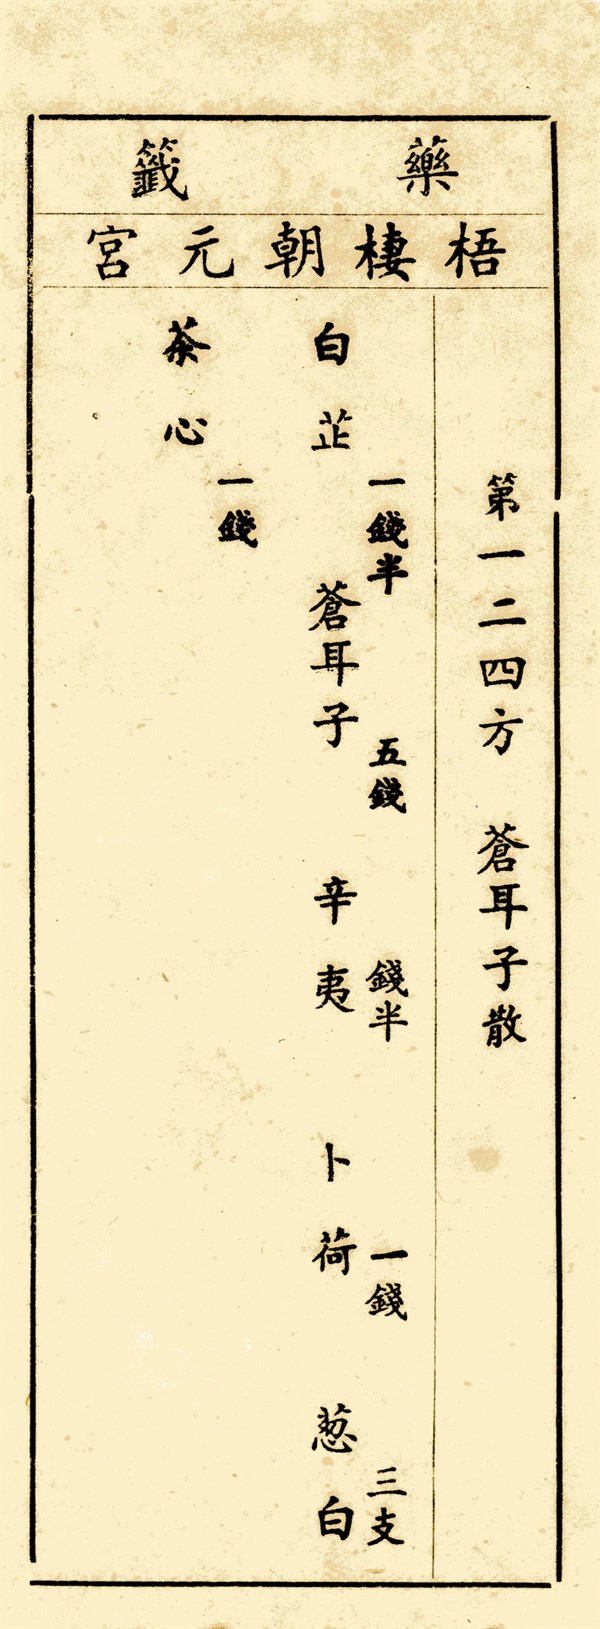 藥籤
梧棲朝元宮
第一二四方 蒼耳子散
白芷 一錢半 蒼耳子 五錢 辛夷 錢半 卜荷 一錢 葱白 三支
茶心 一錢